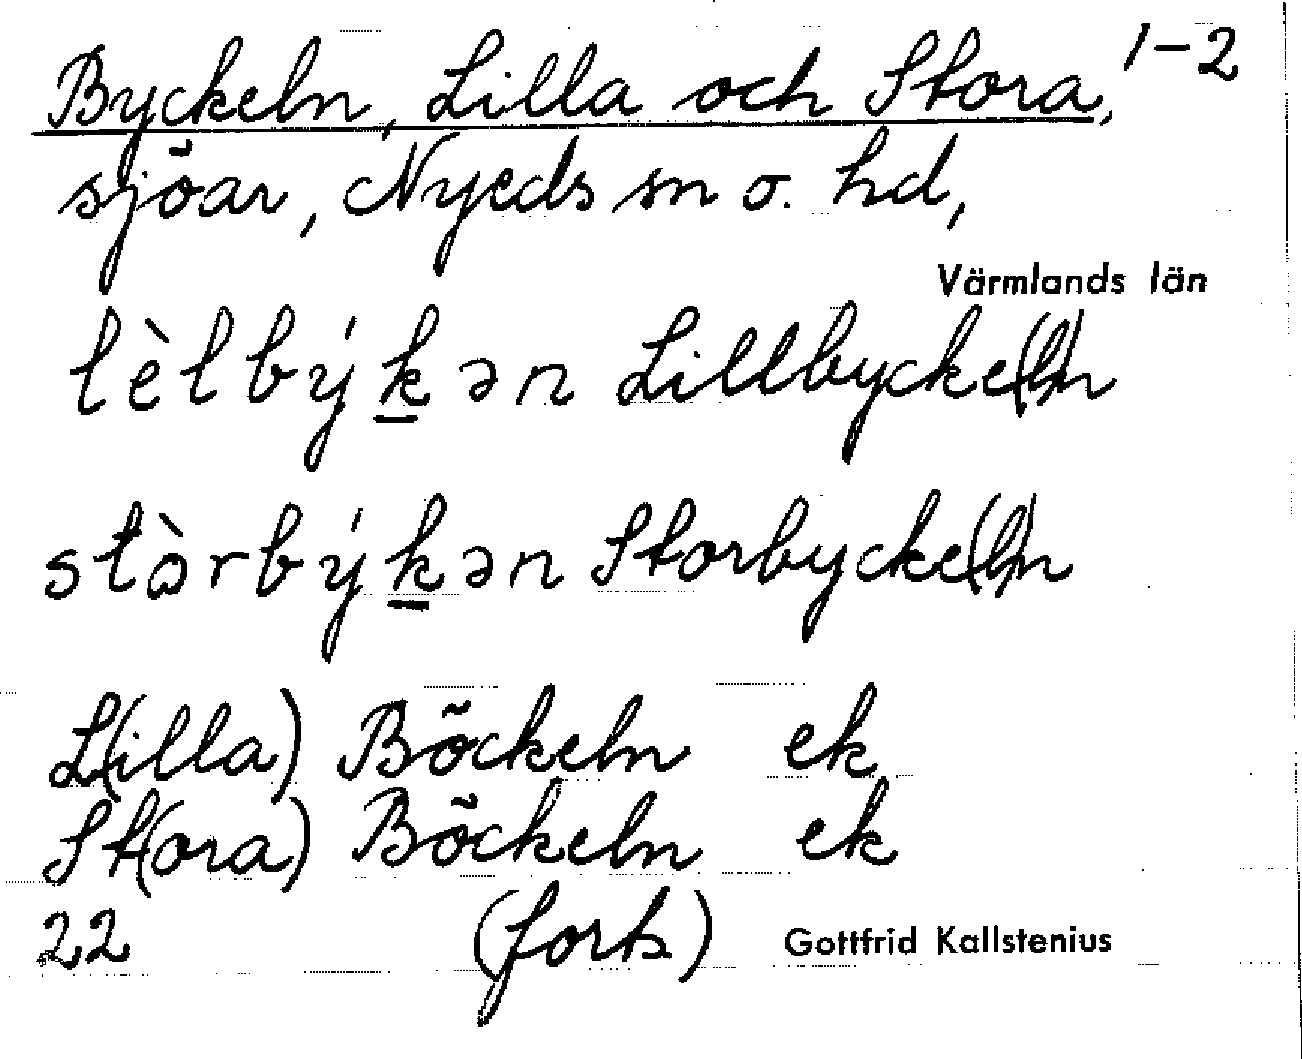 Byckeln, Lilla och Stora, 1-2
sjöar, Nyeds sn o. hd,
Värmlands län
lèlbýk̲ən Lillbycke(l)n
stòrbýk̲ən Storbycke(l)n
L(illa) Böckeln ek
St(ora) Böckeln ek
22 (forts) Gottfrid Kallstenius